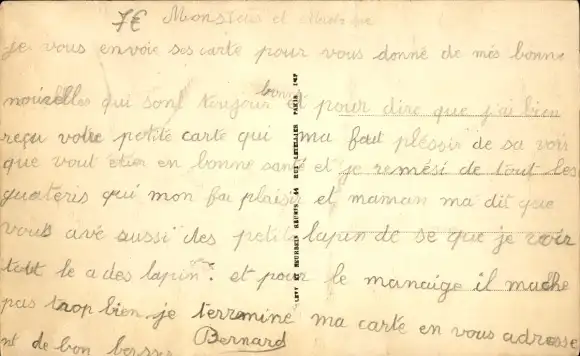 7€ Monsieur et Madame
je vous envoie ses carte pour vous donné de més bonne
nouvelles qui sont toujour bonne et pour dire que j'ai bien
reçu votre petite carte qui ma fait plésoir de sa voir
que vout étier en bonne santé et je remési de tout les
quateris qui mon fai plaisir et maman ma dit que
vous avé aussi des petits lapin de se que je voir
tout le a des lapin. et pour le manaige il mache
pas trop bien je terrmine ma carte en vous adresse
nt de bon
Bernard
LEVY ET NEURDEIN REUNIS 44 RUE LETELLIER PARIS IMP